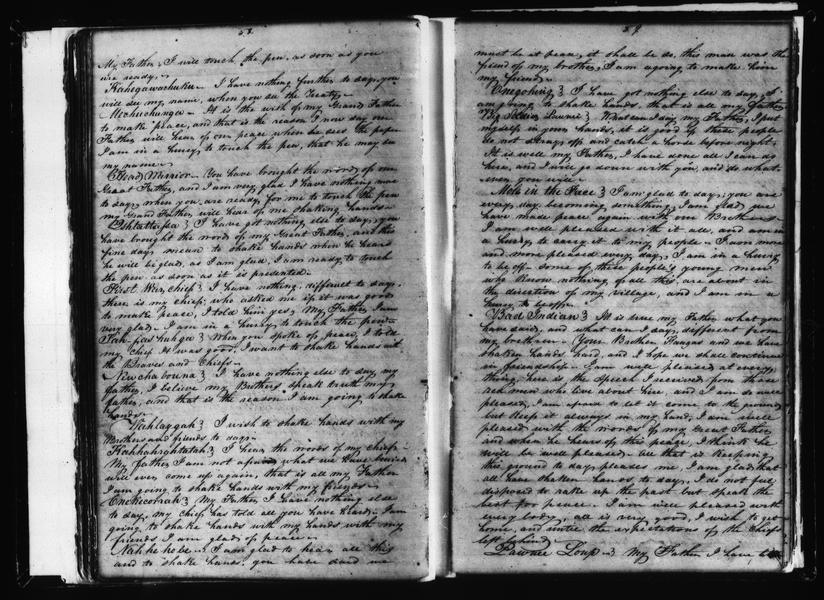 58
My Father, I will touch the pen, as soon as you
are ready.
Kahegawashuku - I have nothing further to say, you
will see my name, when you see the Treaty.
Mechuchunga - It is the wish of my Grand Father
to make peace, and that is the reason I now say our
Father will hear of our peace when he sees the paper
I am in a hurry, to touch the pen, that he may see
my name.
Dead Warrior - You have brought the words of our
Great Father, and I am very glad I have nothing more
to say, when you are ready, for me to touch the pen
my Grand Father will hear of me shaking hands.
I have got nothing else to day, you
have brought the words of my Great Father, and this
fine day mean to shake hands when he hears
he will be glad, as I am glad, I am ready to touch
the pen as soon as it is presented.
First War Chief } I have nothing different to say.
there is my chief, who asked me if it was good
to make peace, I told him yes, My Father I am
very glad. I am in a hurry to touch the pen.
When you spoke of peace, I told
my chief it was good, I want to shake hands with
the Braves and Chiefs.
Newchabouna } I have nothing else to day, my
father, I believe my Brothers speak truth my
father, and that is the reason I am going to shake
hands.
I wish to shake hands with my
Brothers and friends to day.
I hear the words of my chief
My Father I am not afraid what we have buried
will ever come up again, that is all my Father
I am going to shake hands with my friends.
My Father I have nothing else
to day, my chief has told all you have heard. I am
going to shake hands with my hands with my
friends I am glad of peace.
Nahhehobe - I am glad to hear all this
and to shake hands. you have said we
59
must be at peace, it shall be so, this man was the
friend of my brother, I am agoing to make him
my friend.
I have got nothing else to day, I
am going to shake hands. that is all my father
Big Soldier Pawnee } What can I day, my Father, I put
myself in your hands, it is good if these people
do not stray off and catch a horse before night,
It is well my Father, I have done all I can do
here, and I will go down with you, and do what
ever you will.
Mole in the Face } I am glad to day, you are
every day becoming something, I am glad we
have made peace again with our Brothers
I am well pleased with it all, and am in
a hurry to carry it to my people - I am more
and more pleased every day, I am in a hurry
to be off - some of these people's young men
who know nothing of all this, are about in
the direction of my village, and I am in a
hurry to be off.
Bad Indian } It is true my Father what you
have said, and what can I day different from
my brethren - Your Brother Haugas and we have
shaken hands hard, and I hope we shall continue
in friendship. I am well pleased at every
thing, here is the speech I received from those
red men who live about here, and I am so well
pleased, I am afraid to let it come to the ground
but keep it always in my hand, I am well
pleased with the words of my Great Father,
and when he hears of this peace, I think he
will be well pleased. All that is keeping
this ground to day, pleases me, I am glad that
all have shaken hands to day, I do not feel
disposed to rake up the past but speak the
best for peace. I am well pleased with
every body, all is very good, I wish to get
home, and meet the expectations of the Chiefs
left behind.
Pawnee Loup } My Father I have